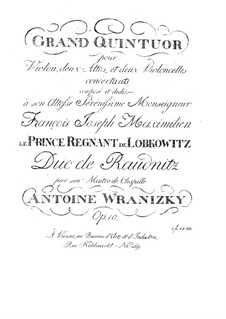 GRAND QUINTUOR
pour
Violon, deux Altes, et deux Violoncelles
concertants
composé et dédié
à son Altesse Sérénissime Monseigneur
François Joseph Maximilien
LE PRINCE REGNANT DE LOBKOWITZ
Duc de Raudnitz
par son Maitre de Chapelle
ANTOINE WRANIZKY
Op. 10.
À Vienne, au Bureau d'Arts et d'Industrie,
Rue Kohlmarkt No. 269.